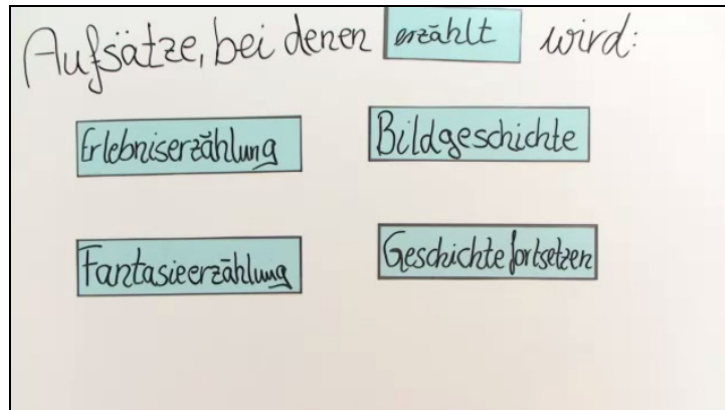 Aufsätze, bei denen erzählt wird:
Erlebniserzählung
Bildgeschichte
Fantasieerzählung
Geschichte fortsetzen